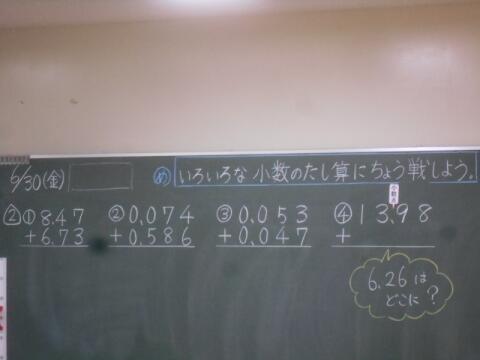 6/30(金)
め いろいろな小数のたし算にちょう戦しよう。
② ① 8.47
+6.73
② 0.074
+0.586
③ 0.053
+0.047
小数点
④ 13.98
+
6.26は
どこに?